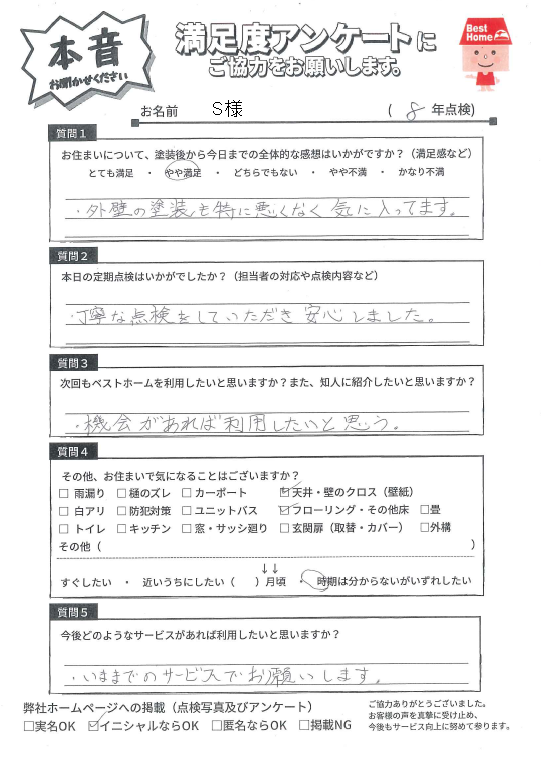 本音
お聞かせください
満足度アンケートに
ご協力をお願いします。
Best Home
お名前 S様 ( 8 年点検)
質問1
お住まいについて、塗装後から今日までの全体的な感想はいかがですか?(満足感など)
とても満足 ・ やや満足 ・ どちらでもない ・ やや不満 ・ かなり不満
・外壁の塗装も特に悪くなく気に入ってます。
質問2
本日の定期点検はいかがでしたか?(担当者の対応や点検内容など)
・丁寧な点検をしていただき安心しました。
質問3
次回もベストホームを利用したいと思いますか?また、知人に紹介したいと思いますか?
・機会があれば利用したいと思う。
質問4
その他、お住まいで気になることはございますか?
□ 雨漏り □ 樋のズレ □ カーポート ☑ 天井・壁のクロス(壁紙)
□ 白アリ □ 防犯対策 □ ユニットバス ☑ フローリング・その他床 □畳
□ トイレ □ キッチン □ 窓・サッシ廻り □ 玄関扉(取替・カバー) □外構
その他( )
↓↓
すぐしたい ・ 近いうちにしたい( )月頃 ・ 時期は分からないがいずれしたい
質問5
今後どのようなサービスがあれば利用したいと思いますか?
・いままでのサービスでお願いします。
弊社ホームページへの掲載(点検写真及びアンケート)
□実名OK ☑イニシャルならOK □匿名ならOK □掲載NG
ご協力ありがとうございました。
お客様の声を真摯に受け止め、
今後もサービス向上に努めて参ります。